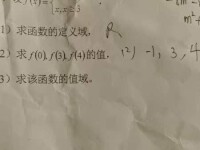 x, x≤3
1）求函数的定义域. R
2）求 f(0), f(3), f(4)的值. (2) -1, 3, 4
3）求该函数的值域.